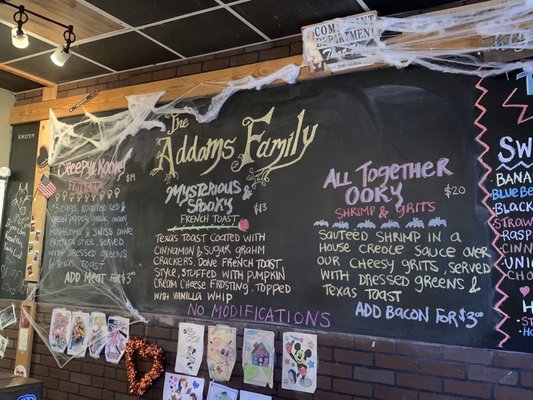 COMPLAINT
DEPARTMENT
200 MILES
The
Addams Family
Creepy & Kooky
Frittata
$14
3 eggs, roasted red &
green peppers, garlic, onion
mushrooms & Swiss, done
frittata style, served
with dressed greens
& Texas toast
Add meat for $3
Mysterious &
Spooky
French Toast
$13
Texas toast coated with
cinnamon & sugar graham
crackers, done French toast
style, stuffed with pumpkin
cream cheese frosting, topped
with vanilla whip
All Together
Ooky
$20
Shrimp & Grits
Sauteed shrimp in a
house creole sauce over
our cheesy grits, served
with dressed greens &
Texas toast
Add bacon for $3.00
No Modifications
SW
BANAN
BLUEBE
BLACK
STRAW
RASP
CINN
UNIC
CHO